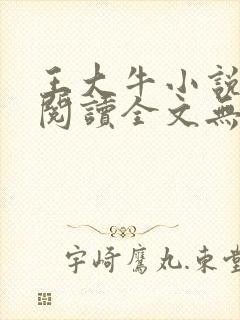 王大牛小說
閱讀全文無
宇崎鷹丸.東堂